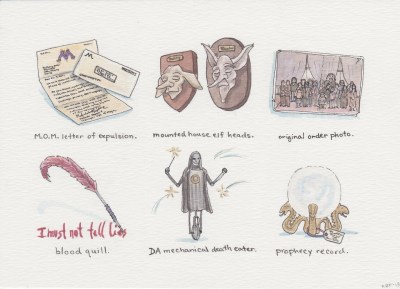 M.O.M. letter of expulsion.
mounted house elf heads.
original order photo.
I must not tell lies
blood quill.
DA mechanical death eater.
prophecy record.